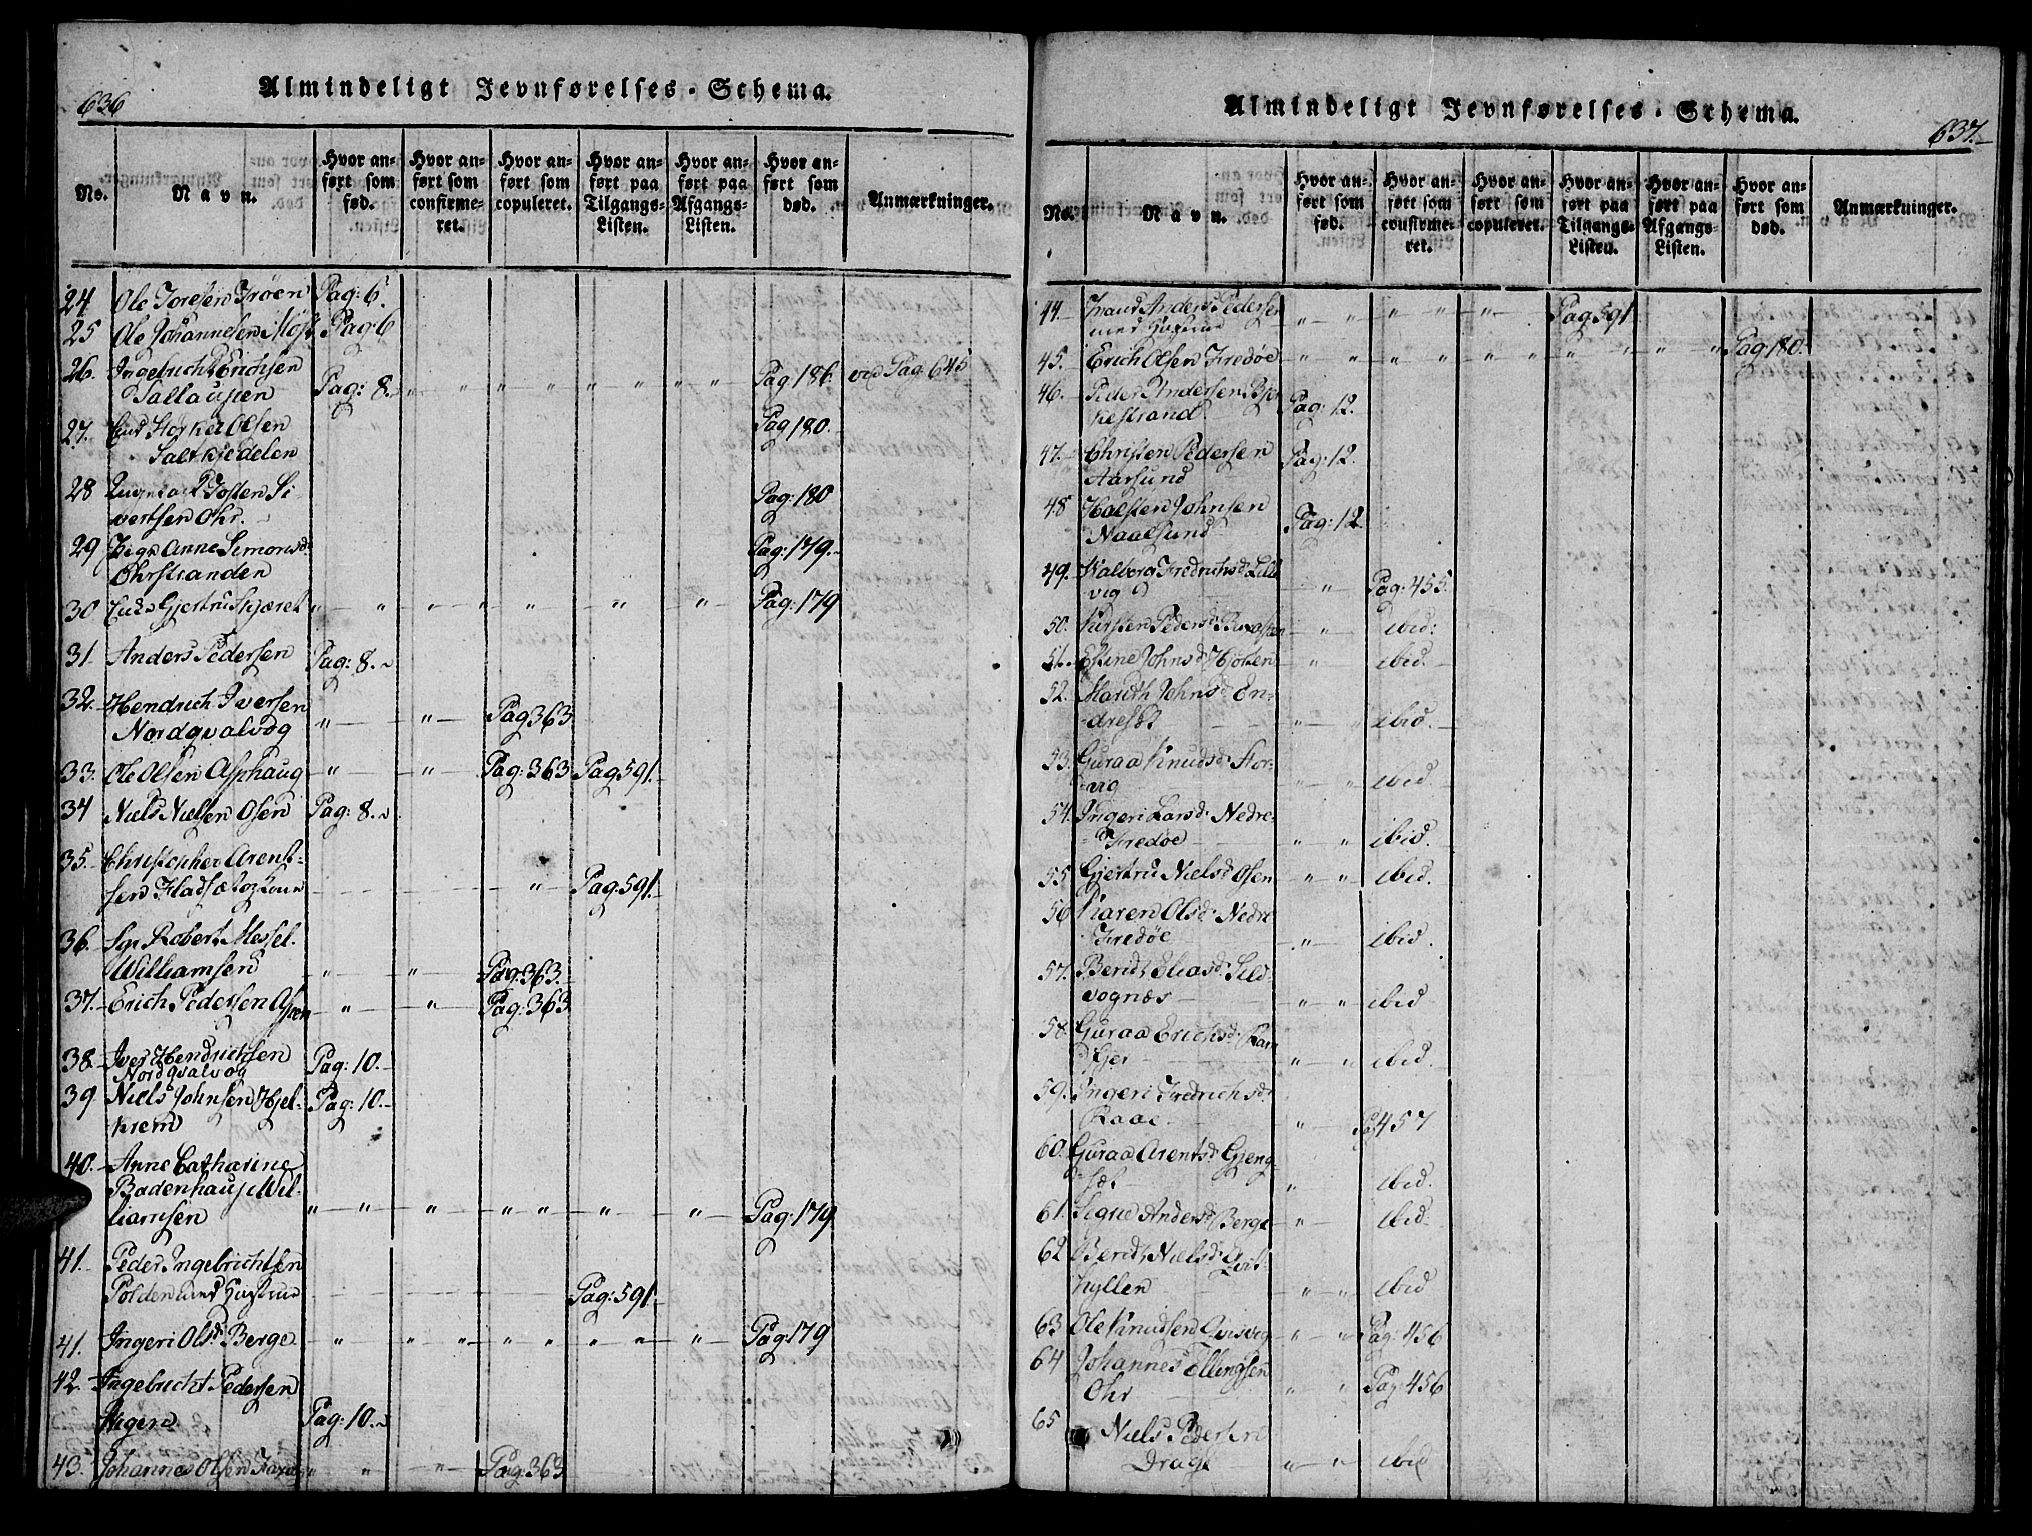 636
Almindeligt Jevnførelses-Schema.
No.
Navn.
Hvor anført som fød.
Hvor anført som confirmeret.
Hvor anført som copuleret.
Hvor anført paa Tilgangs-Listen.
Hvor anført paa Afgangs-Listen.
Hvor anført som død.
Anmærkninger.
24 Ole Toresen Frøen Pag: 6.
25 Ole Johannesen Pag: 6
26. Ingebricht Erichsen
Pag: 8. Pag 186. vid Pag: 645
27. Olsen Pag 180.
Saltkjedelen
28 Josten Si-
vertsen Ohr. Pag: 180
29 Anne Simonsd: Pag: 179.
Ohrstranden
30 Gjertru Skjæret Pag: 179
31 Anders Pedersen Pag: 8.
32. Hendrich Iversen
Nordqvalvog Pag 363
33. Ole Olsen Asphaug Pag: 363 Pag 591.
34 Niels Nielsen Osen Pag: 8.
35. Christopher Arent-
sen Pag: 591.
36. Sgr Robert Messel
Williamsen Pag: 363.
37. Erich Pedersen Aspen Pag: 363
38. Iver Hendrichsen Pag: 10.
Nordqvalvog
39 Niels Johnsen Hjel- Pag: 10.
krem
40. Anne Catharine
Badenhaup Wil-
liamsen Pag: 179
41. Peder Ingebrichtsen
Polden med Hustrue Pag: 591
41. Ingeri Olsd: Berge Pag: 179
42. Ingebricht Pedersen
Pag: 10.
43. Johannes Olsen Pag: 363
Almindeligt Jevnførelses-Schema.
637.
No.
Navn.
Hvor anført som fød.
Hvor anført som confirmeret.
Hvor anført som copuleret.
Hvor anført paa Tilgangs-Listen.
Hvor anført paa Afgangs-Listen.
Hvor anført som død.
Anmærkninger.
44. Anders Pedersen Pag 591
med Hustrue
45. Erich Olsen Fredøe Pag 180.
46. Peder Andersen Bjer-
kestrand Pag: 12.
47. Christen Pedersen Pag: 12.
Aarsund
48 Halsten Johnsen
Naalsund Pag: 12
49. Walborg Fredrichsd: Lille
vig Pag: 455.
50. Kirsten Pedersd: ibid:
51. Eline Johnsd: ibid.
52. Marith Johnsd: En-
dresæt ibid.
53. Guraa Knudsd: Stor-
vig ibid.
54. Ingeri Larsd: Nedre-
Fredøe ibid.
55 Gjertru Nielsd: Osen ibid.
56 Karen Olsd: Nedre
Fredøe ibid.
57. Berit Eliasd: Sild-
vognæs ibid
58. Guraa Erichsd:
ibid.
59. Ingeri Fredrichsd:
Raae P: 457
60. Guraa Arentsd: Gjeng-
sæt ibid.
61. Signe Andersd: Berge ibid.
62 Berit Nielsd: Qvit-
hyllen ibid
63 Ole Knudsen Qvisvig Pag: 456
64 Johannes Ellingsen
Ohr Pag 456
65 Niels Pedersen
Drage ibid